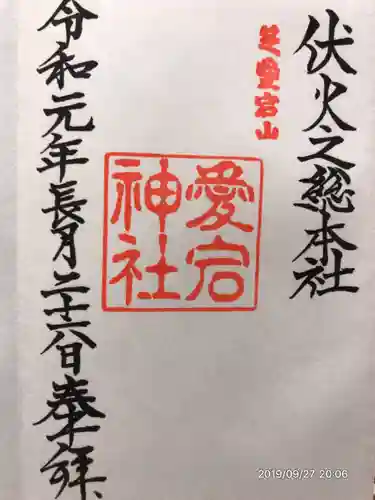 伏火之総本社
芝愛宕山
愛宕
神社
令和元年長月二十六日奉拝
2019/09/27 20:06